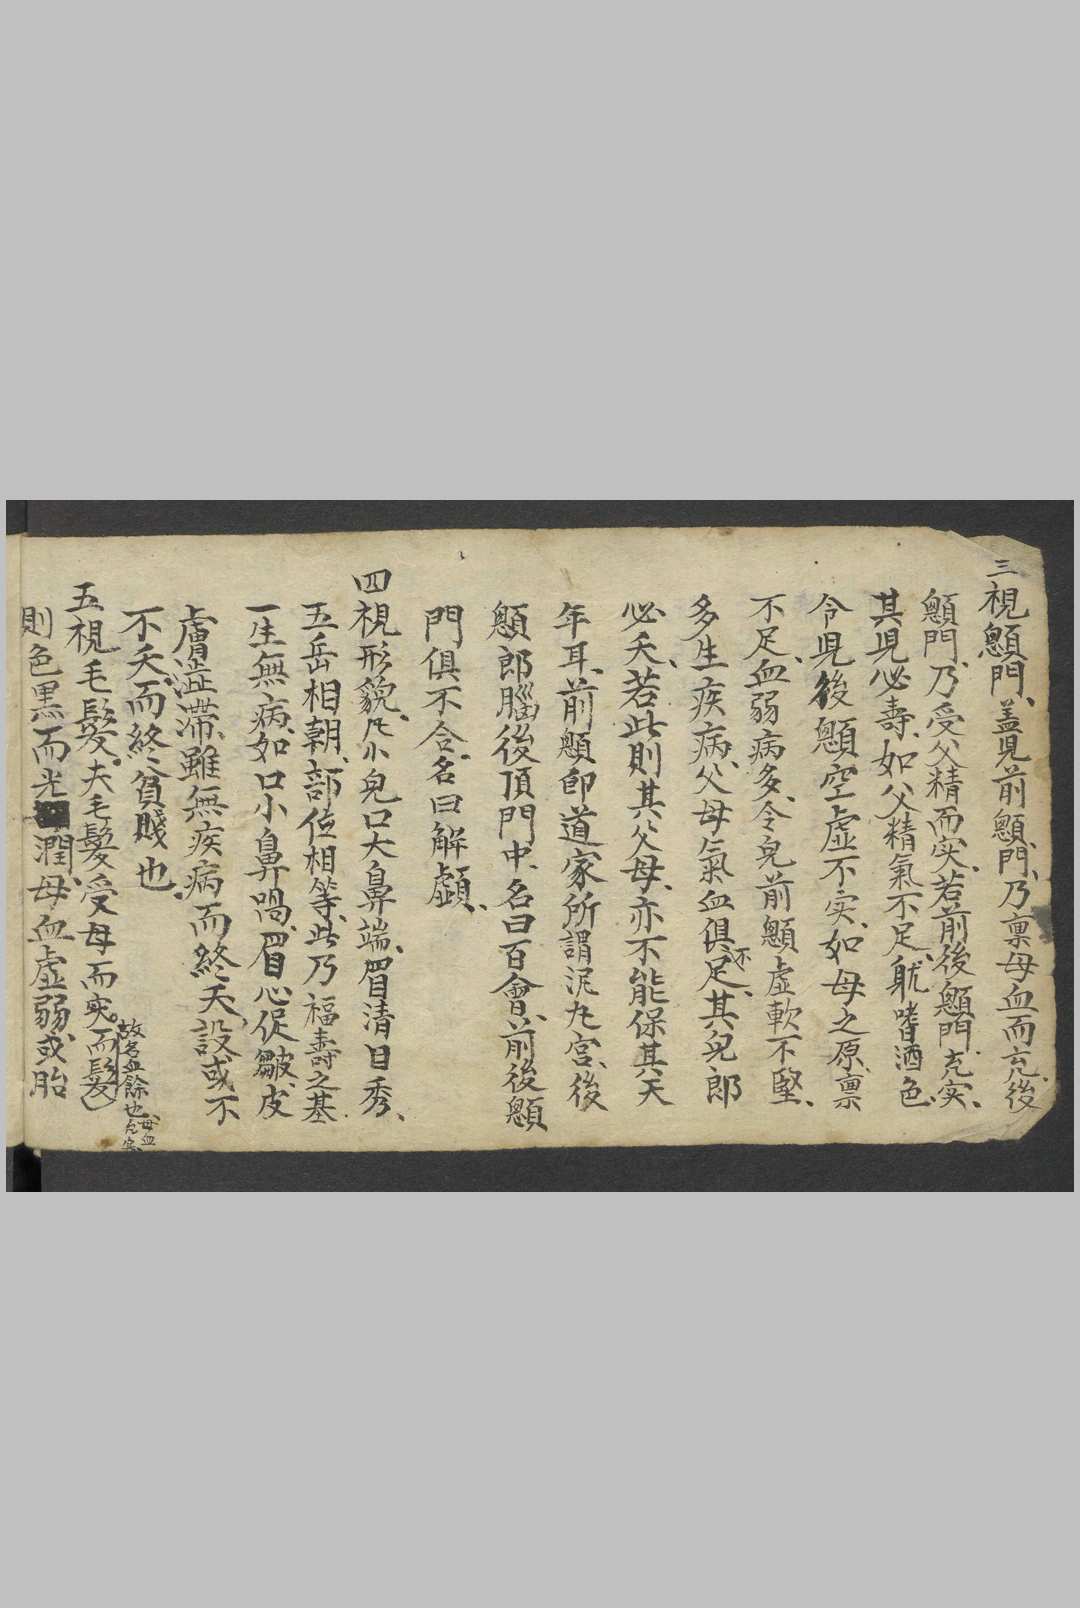 三視顖門、蓋児前顖門、乃禀母血而充、後
顖門、乃受父精而实、若前後顖門充实、
其児必壽、如父精氣不足、躭嗜酒色、
令児後顖空虚不实、如母之原禀
不足、血弱病多、令兒前顖虚軟不堅、
多生疾病、父母氣血俱不足、其兒郎
必夭、若此則其父母、亦不能保其天
年耳、前顖即道家所謂泥丸宮、後
顖郎腦後頂門中、名曰百會、前後顖
門俱不合、名曰解顱、
四視形貌、凡小兒口大鼻端、眉清目秀、
五岳相朝、部位相等、此乃福壽之基
一生無病、如口小鼻喎、眉心促皺、皮
膚澁滞、雖無疾病而終夭、設或不
不夭、而終貧賤也、
五視毛髮、夫毛髮受母而实。而髮
故名血餘也、母血充实、
則色黒而光潤、母血虚弱、或胎